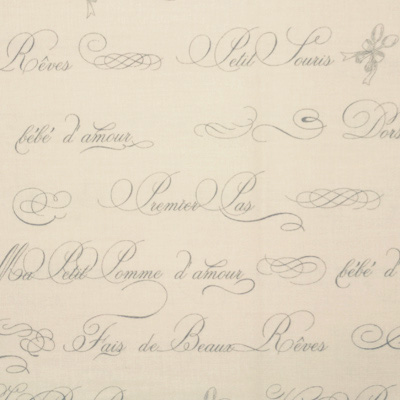 Rêves Petit Souris
bébé d'amour Dors
Premier Pas
Ma Petit Pomme d'amour bébé d
Fais de Beaux Rêves